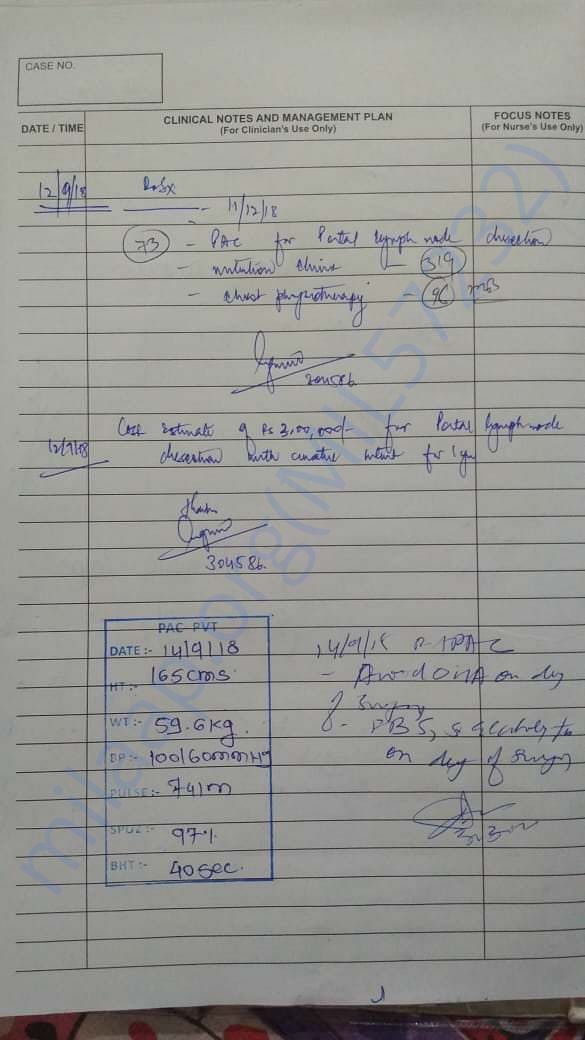 CASE NO.
DATE / TIME
CLINICAL NOTES AND MANAGEMENT PLAN
(For Clinician's Use Only)
FOCUS NOTES
(For Nurse's Use Only)
12/9/18
- 11/12/18
73 - PAC for Portal lymph node dissection
- nutrition clinic - 319
- chest physiotherapy - 96
304586
12/9/18 Cost estimate of Rs 3,00,000/- for Portal lymph node
dissection with curative intent for 1 yr
304586.
PAC PVT
DATE:- 14/9/18
HT:- 165cms
WT:- 59.6kg.
BP:- 100/60mmHg
PULSE:- 74/m
SPO2:- 97%
BHT:- 40sec.
14/9/18 PAC
- Avoid on day
of surgery
- RBS, S
on day of surgery
milaap.org(MIL57232)